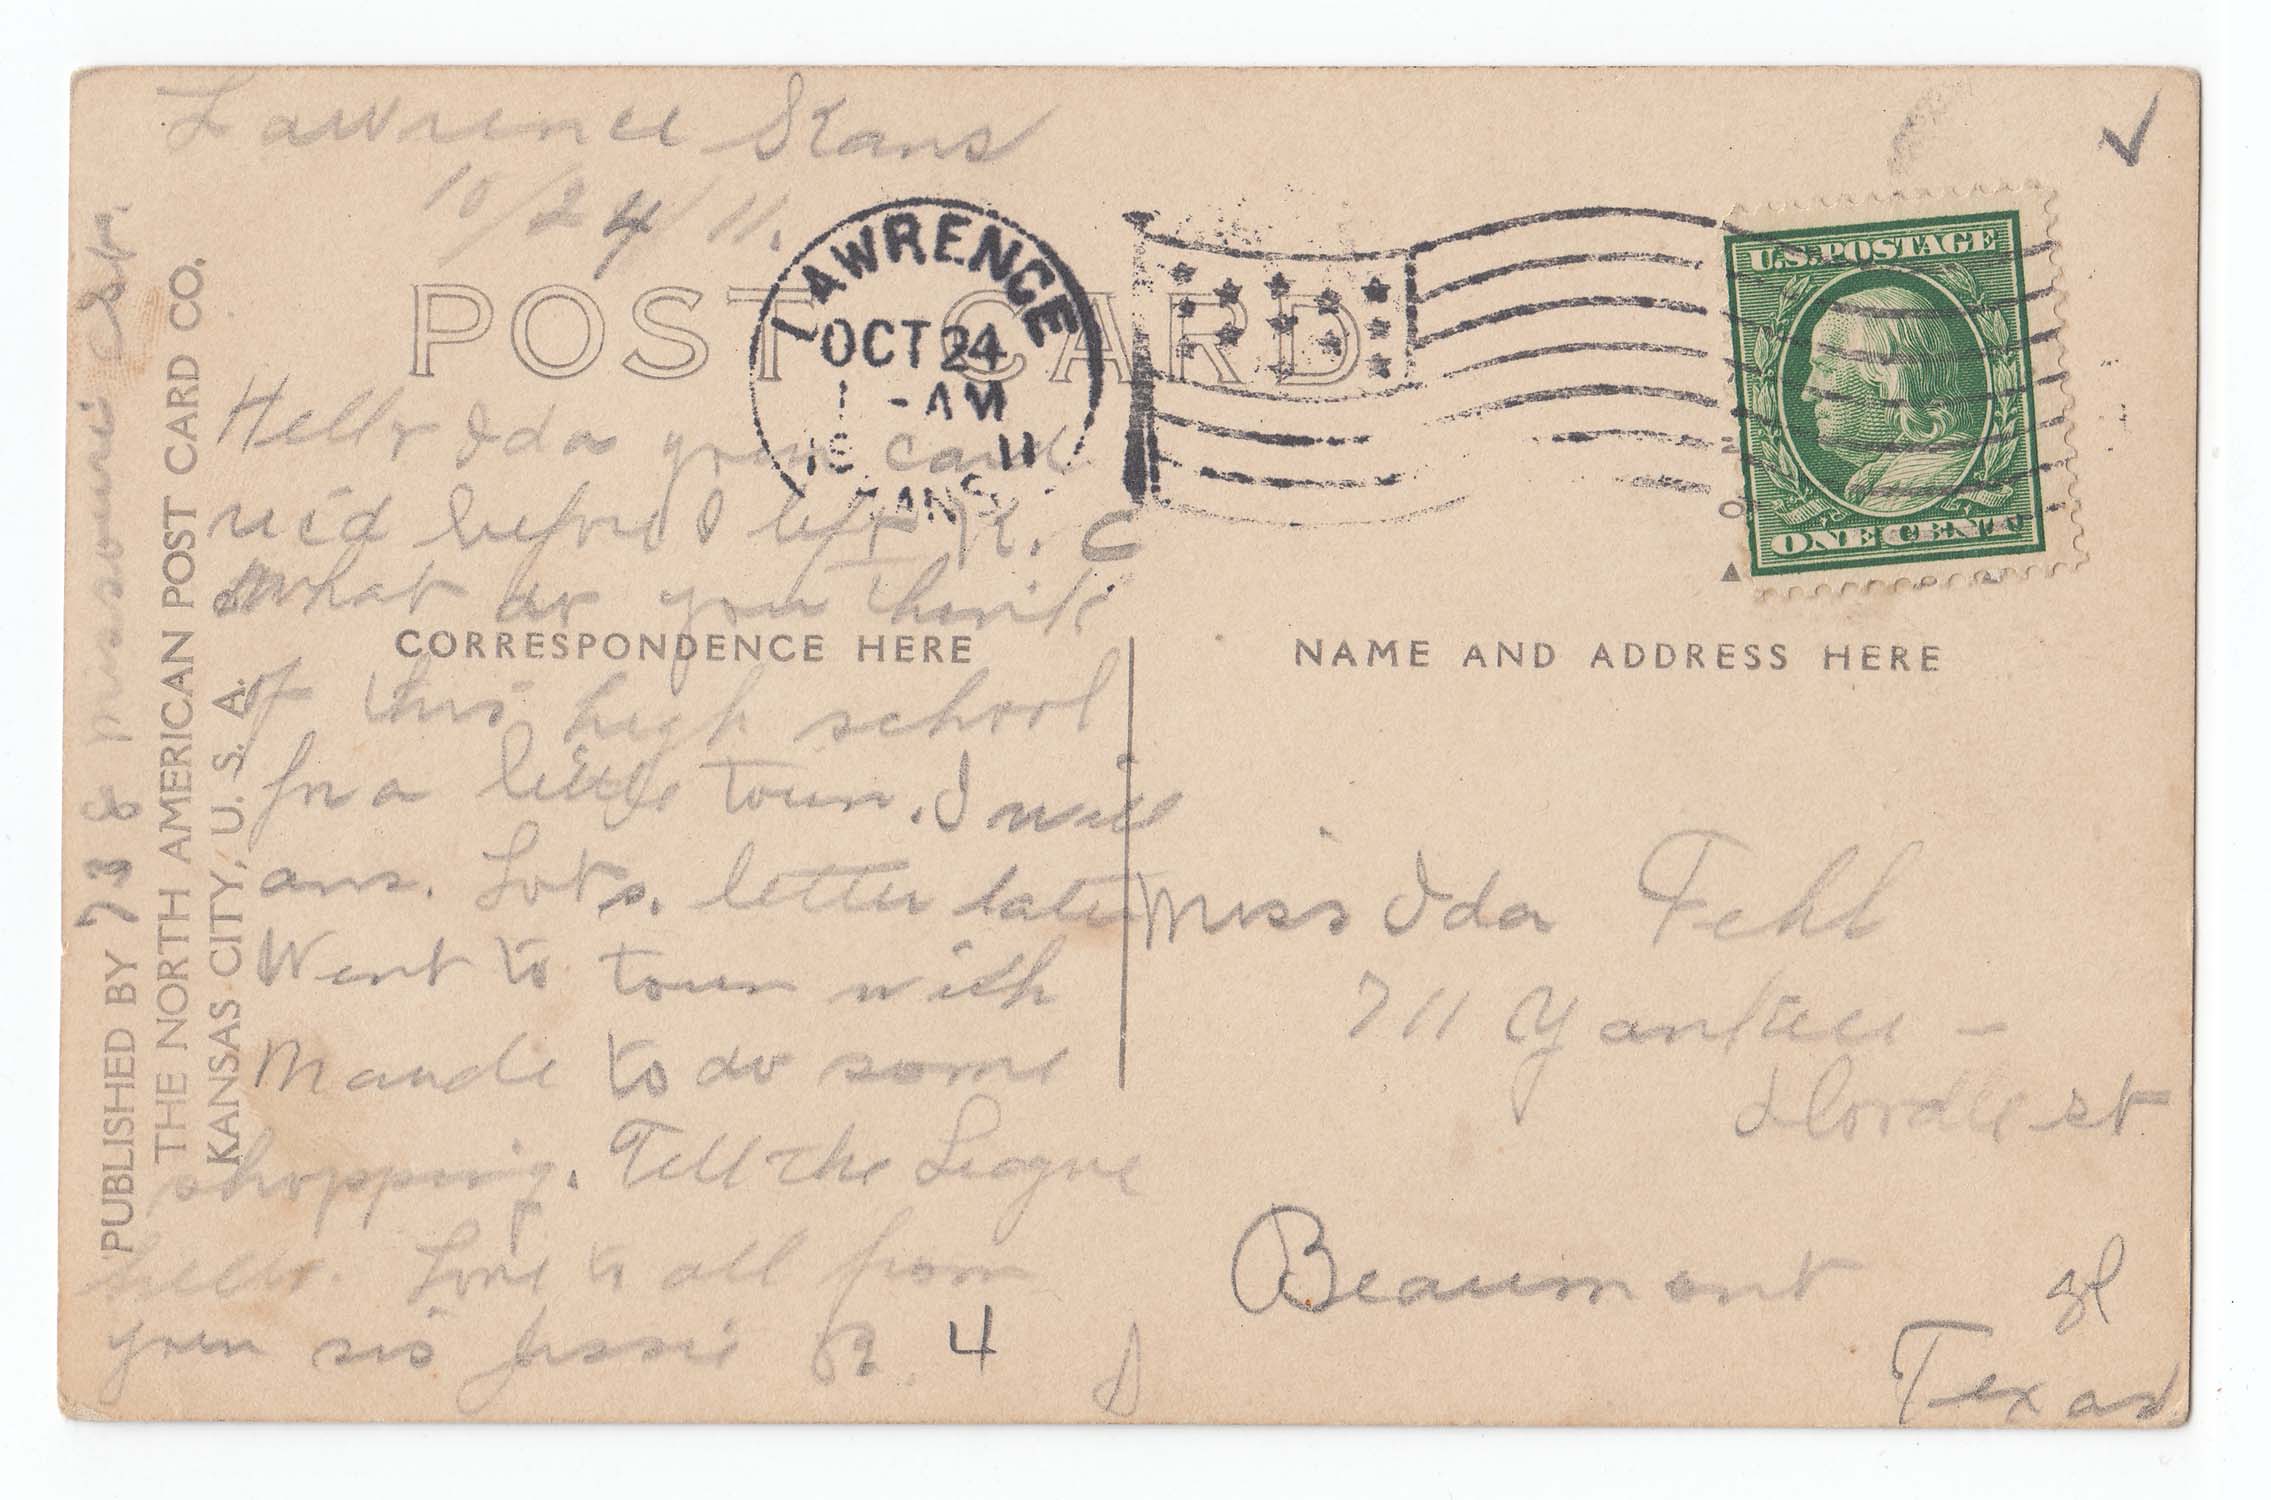 Lawrence Kans
10/24/11.
738 Missouri St.
POST CARD
LAWRENCE
OCT 24
1 -AM
11
KANS.
U.S. POSTAGE
ONE CENT
Hello Ida your card
rec'd before I left K. C
What do you think
of this high school
for a little town. I will
ans. Lots. letter later
Went to town with
Maude to do some
shopping. Tell the League
hello. Love to all from
your sis Jessie R. 4
CORRESPONDENCE HERE
NAME AND ADDRESS HERE
Miss Ida Fehl
711 Yankee -
st
Beaumont
Texas
PUBLISHED BY
THE NORTH AMERICAN POST CARD CO.
KANSAS CITY, U. S. A.